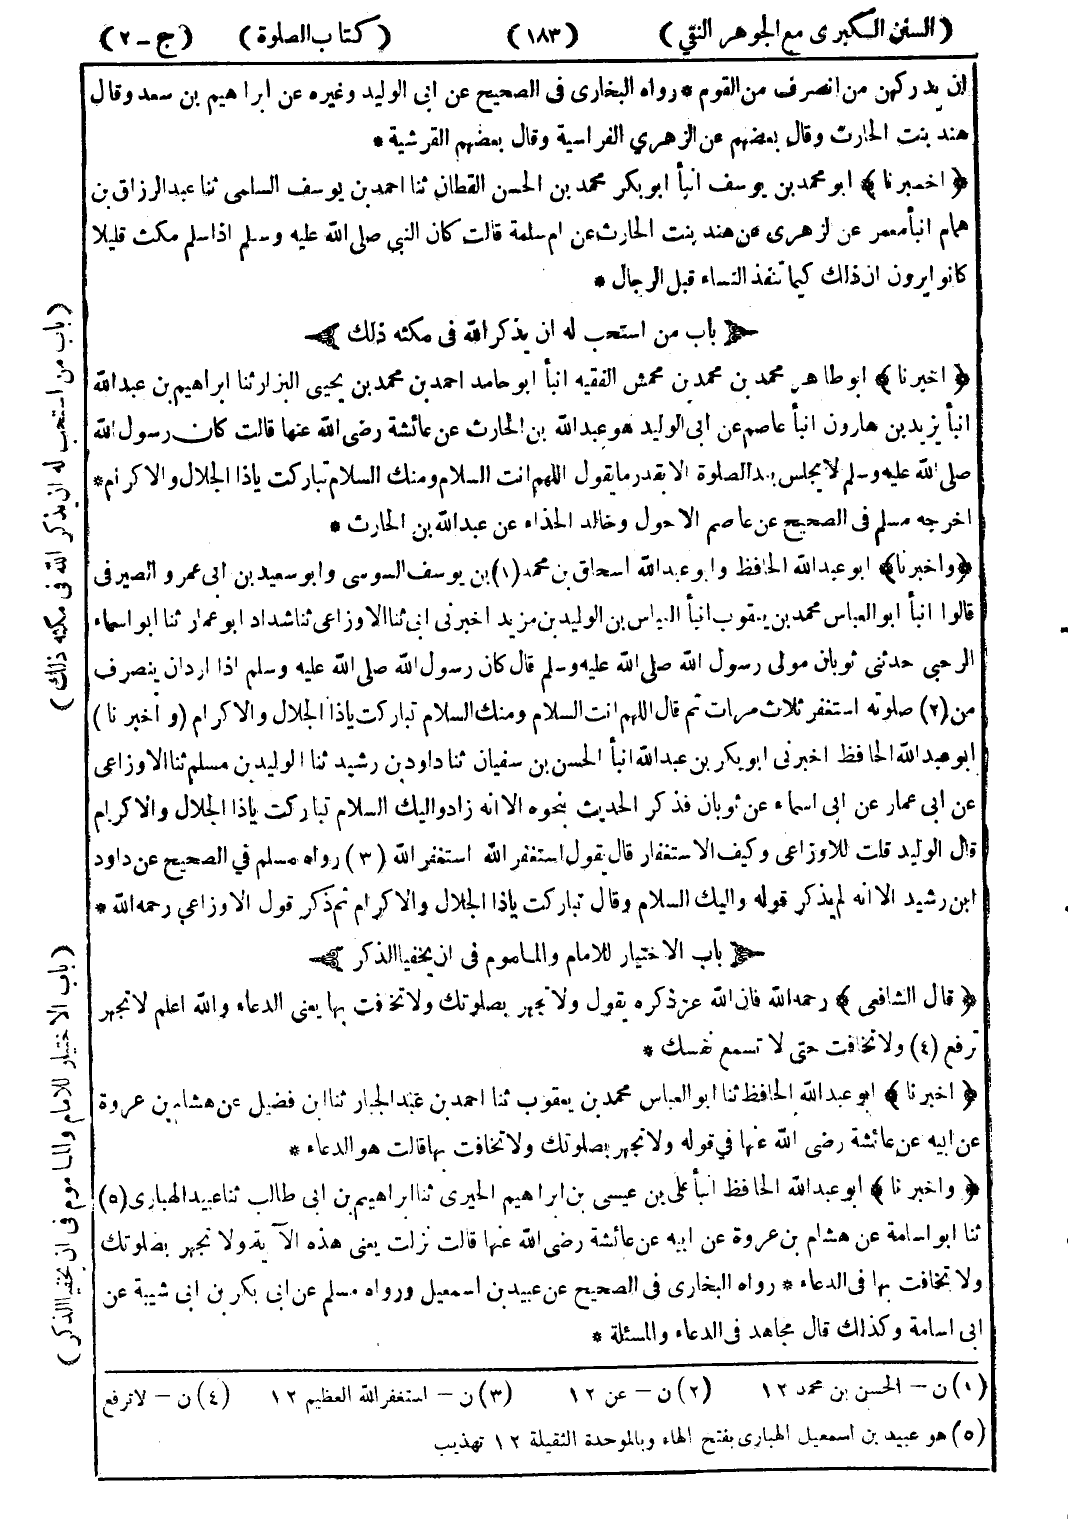 (السنن الكبرى مع الجوهر النقي) (١٨٣) (كتاب الصلوة) (ج ـ ٢)
ان يدركهن من انصرف من القوم * رواه البخارى فى الصحيح عن ابى الوليد وغيره عن ابراهيم بن سعد وقال
هند بنت الحارث وقال بعضهم عن الزهري الفراسية وقال بعضهم القرشية *
﴿اخبرنا﴾ ابو محمد بن يوسف انبأ ابوبكر محمد بن الحسن القطان ثنا احمد بن يوسف السلمى ثنا عبدالرزاق بن
همام انبأ معمر عن لزهرى عن هند بنت الحارث عن ام سلمة قالت كان النبي صلى الله عليه وسلم اذا سلم مكث قليلا
كانوا يرون ان ذلك كيما تنفذ النساء قبل الرجال *
باب من استحب له ان يذكر الله فى مكثه ذلك
﴿اخبرنا﴾ ابو طاهر محمد بن محمد بن محمش الفقيه انبأ ابو حامد احمد بن محمد بن يحيى البزار ثنا ابراهيم بن عبدالله
انبأ يزيد بن هارون انبأ عاصم عن ابى الوليد هو عبدالله بن الحارث عن عائشة رضى الله عنها قالت كان رسول الله
صلى الله عليه وسلم لا يجلس بعد الصلوة الا بقدر ما يقول اللهم انت السلام ومنك السلام تباركت ياذا الجلال والاكرام *
اخرجه مسلم فى الصحيح عن عاصم الاحول وخالد الحذاء عن عبدالله بن الحارث *
﴿واخبرنا﴾ ابو عبدالله الحافظ وابو عبدالله اسحاق بن محمد (١) بن يوسف السوسى وابو سعيد بن ابى عمرو الصيرفى
قالوا انبأ ابو العباس محمد بن يعقوب انبأ العباس بن الوليد بن مزيد اخبرنى ابى ثنا الاوزاعى ثنا شداد ابو عمار ثنا ابو اسماء
الرحبى حدثنى ثوبان مولى رسول الله صلى الله عليه وسلم قال كان رسول الله صلى الله عليه وسلم اذا اراد ان ينصرف
من (٢) صلوته استغفر ثلاث مرات ثم قال اللهم انت السلام ومنك السلام تباركت ياذا الجلال والاكرام (واخبرنا)
ابو عبدالله الحافظ اخبرنى ابو بكر بن عبدالله انبأ الحسن بن سفيان ثنا داود بن رشيد ثنا الوليد بن مسلم ثنا الاوزاعى
عن ابى عمار عن ابى اسماء عن ثوبان فذكر الحديث بنحوه الا انه زاد واليك السلام تباركت ياذا الجلال والاكرام
قال الوليد قلت للاوزاعى وكيف الاستغفار قال يقول استغفر الله استغفر الله (٣) رواه مسلم في الصحيح عن داود
ابن رشيد الا انه لم يذكر قوله واليك السلام وقال تباركت ياذا الجلال والاكرام ثم ذكر قول الاوزاعي رحمه الله *
باب الاختيار للامام والماموم فى ان يخفيا الذكر
﴿قال الشافعى﴾ رحمه الله فان الله عز ذكره يقول ولا تجهر بصلوتك ولا تخافت بها يعنى الدعاء والله اعلم لا تجهر
ترفع (٤) ولا تخافت حتى لا تسمع نفسك *
﴿اخبرنا﴾ ابو عبدالله الحافظ ثنا ابو العباس محمد بن يعقوب ثنا احمد بن عبد الجبار ثنا ابن فضيل عن هشام بن عروة
عن ابيه عن عائشة رضى الله عنها في قوله ولا تجهر بصلوتك ولا تخافت بها قالت هو الدعاء *
﴿واخبرنا﴾ ابو عبدالله الحافظ انبأ على بن عيسى بن ابراهيم الحيرى ثنا ابراهيم بن ابى طالب ثنا عبيد الهبارى (٥)
ثنا ابو اسامة عن هشام بن عروة عن ابيه عن عائشة رضى الله عنها قالت نزلت يعنى هذه الآية ولا تجهر بصلوتك
ولا تخافت بها فى الدعاء * رواه البخارى فى الصحيح عن عبيد بن اسمعيل ورواه مسلم عن ابى بكر بن ابى شيبة عن
ابى اسامة وكذلك قال مجاهد فى الدعاء والمسئلة *
(١) ن - الحسن بن محمد ١٢ (٢) ن - عن ١٢ (٣) ن - استغفر الله العظيم ١٢ (٤) ن - لا ترفع
(٥) هو عبيد بن اسمعيل الهبارى بفتح الهاء وبالموحدة الثقيلة ١٢ تهذيب
(باب من استحب له ان يذكر الله فى مكثه ذلك)
(باب الاختيار للامام والماموم فى ان يخفيا الذكر)